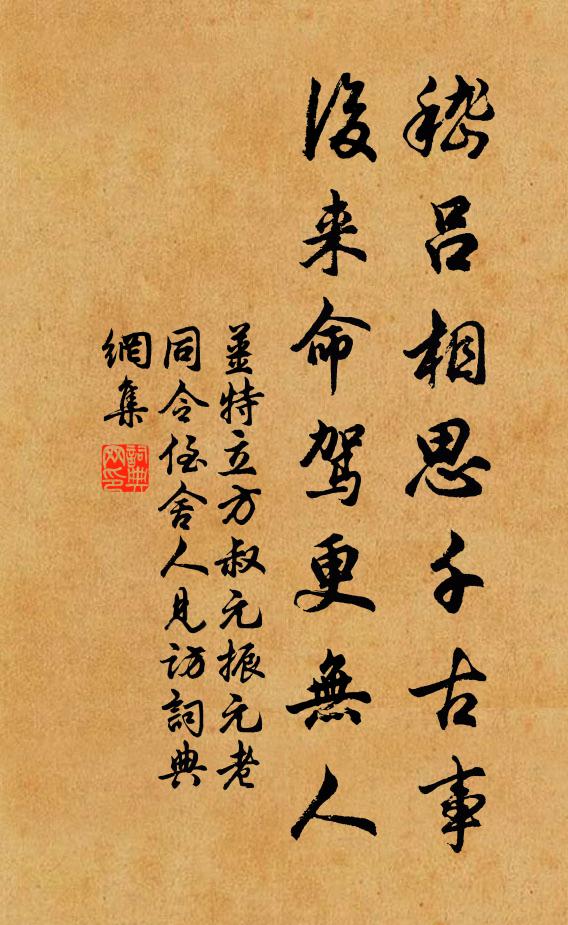 嵇呂相思千古事
後来命駕更無人
姜特立方叔元振元老
同令侄舍人見訪詞典
網集
詞典網印